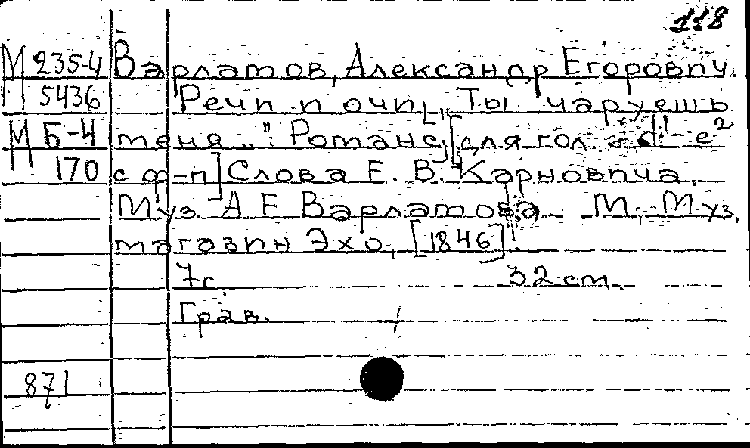 118
М 235-4 Варламов, Александр Егорович.
5436 Речи и очи [„Ты чаруешь
М Б-4 меня..."] Романс [для гол. d¹-e²
170 с ф-п] Слова Е. В. Карновича.
Муз. А Е Варламова. М., Муз.
магазин Эхо, [1846].
7с. 32 см.
Грав.
871